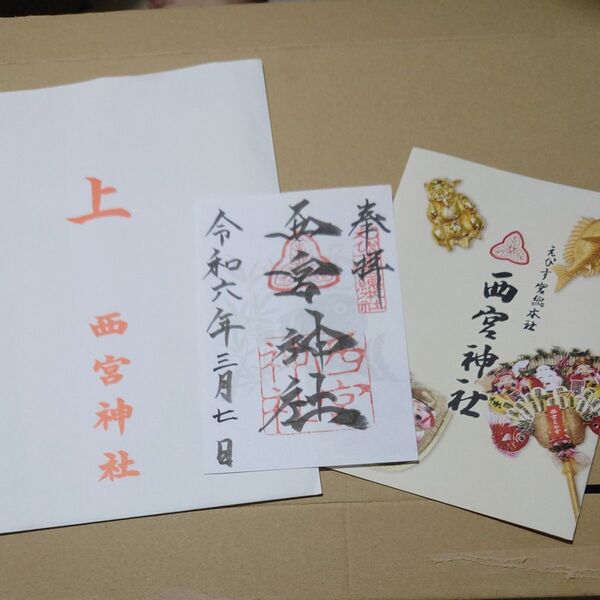 上
西宮神社
奉拝
西宮神社
令和六年三月七日
えびす宮総本社
西宮神社